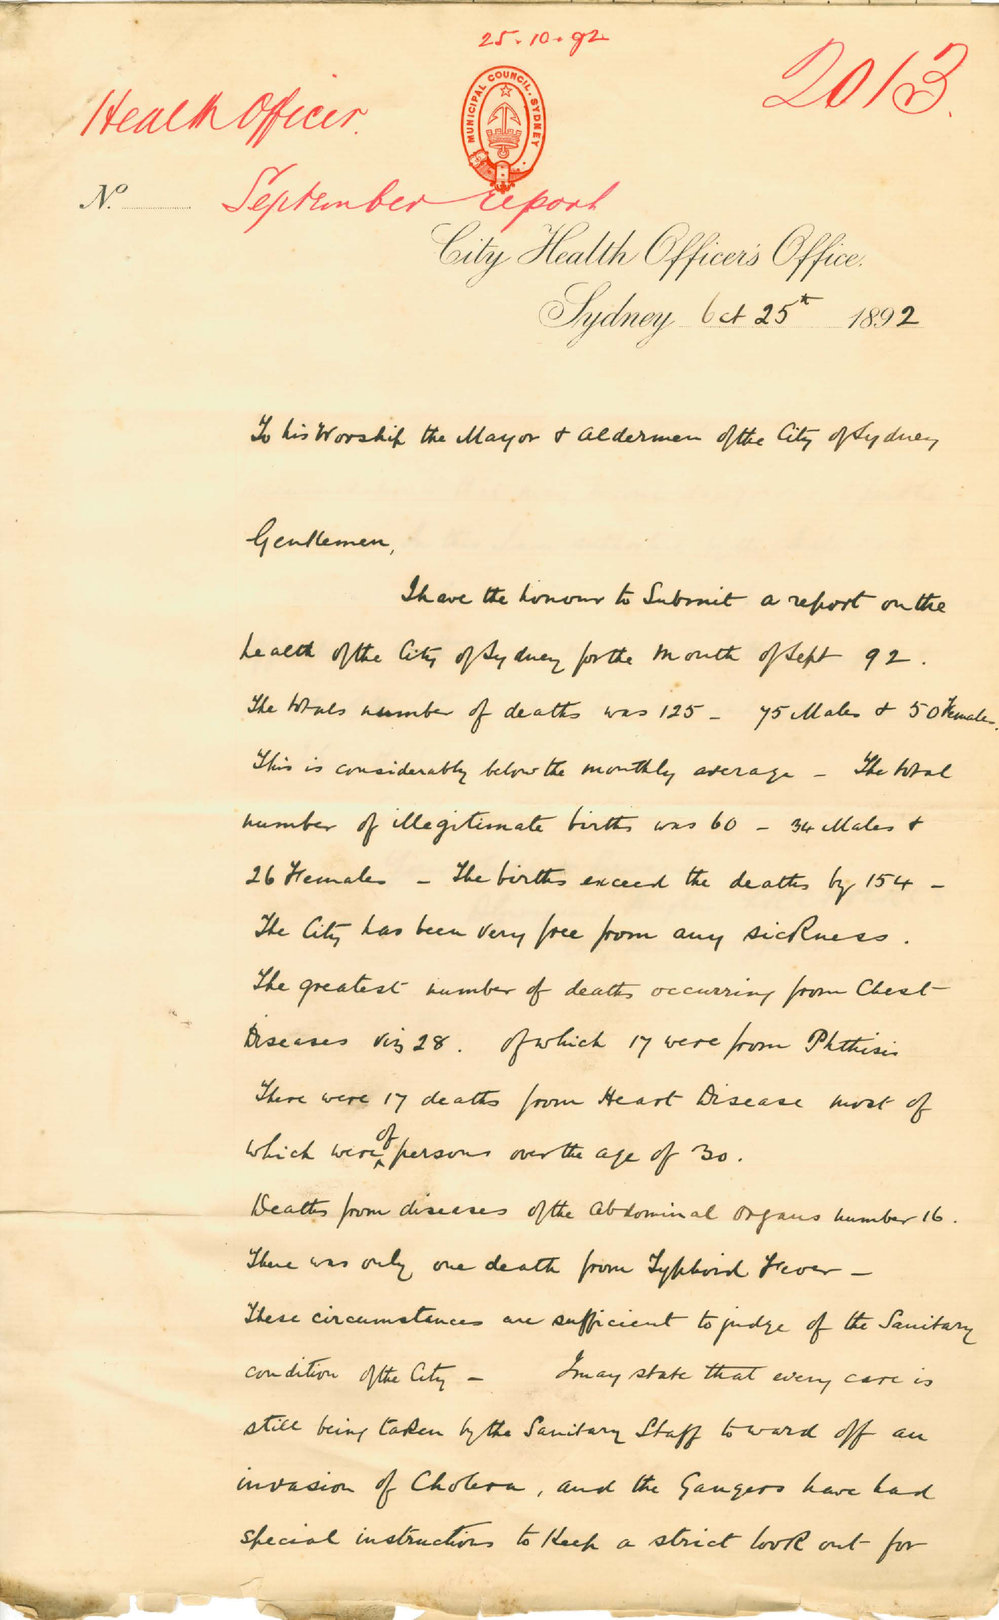 25.10.92
2013.
MUNICIPAL COUNCIL. SYDNEY
Health Officer.
No.
September report
City Health Officer's Office.
Sydney Oct 25th 1892
To his Worship the Mayor & Aldermen of the City of Sydney
Gentlemen,
I have the honour to Submit a report on the
health of the City of Sydney for the Month of Sept 92.
The totals number of deaths was 125 – 75 Males & 50 Females.
This is considerably below the monthly average – The total
number of illegitimate births was 60 – 34 Males &
26 Females – The births exceed the deaths by 154 –
The City has been very free from any sickness.
The greatest number of deaths occurring from Chest
Diseases viz 28. of which 17 were from Phthisis
There were 17 deaths from Heart Disease most of
which were of persons over the age of 30.
Deaths from diseases of the Abdominal Organs number 16.
There was only one death from Typhoid Fever –
These circumstances are sufficient to judge of the Sanitary
condition of the City – I may state that every care is
still being taken by the Sanitary Staff to ward off an
invasion of Cholera, and the Gangers have had
special instructions to Keep a strict look out for